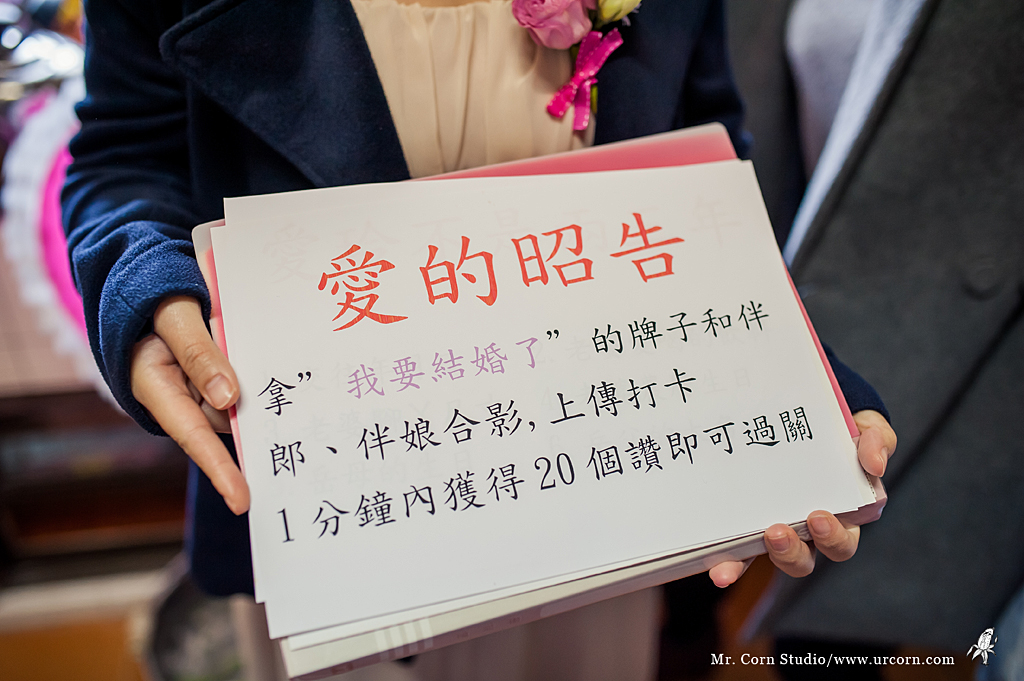 愛的昭告
拿” 我要結婚了” 的牌子和伴
郎、伴娘合影, 上傳打卡
1 分鐘內獲得 20 個讚即可過關
Mr. Corn Studio/www.urcorn.com